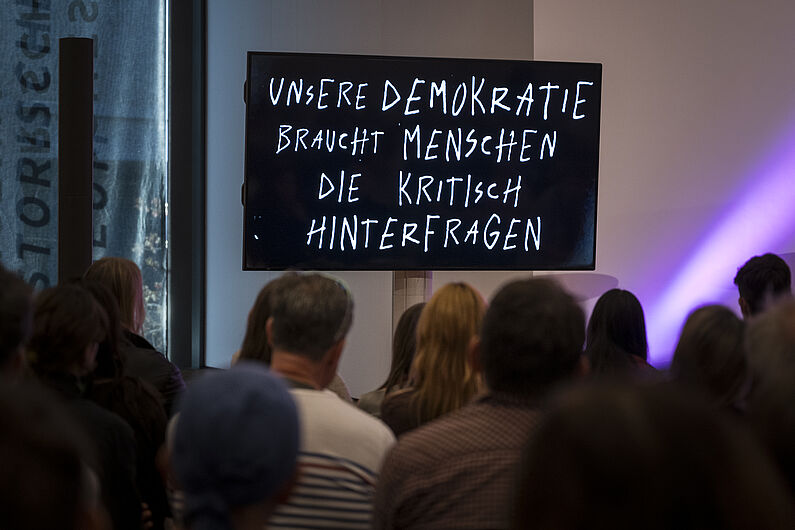 UNSERE DEMOKRATIE
BRAUCHT MENSCHEN
DIE KRITISCH
HINTERFRAGEN